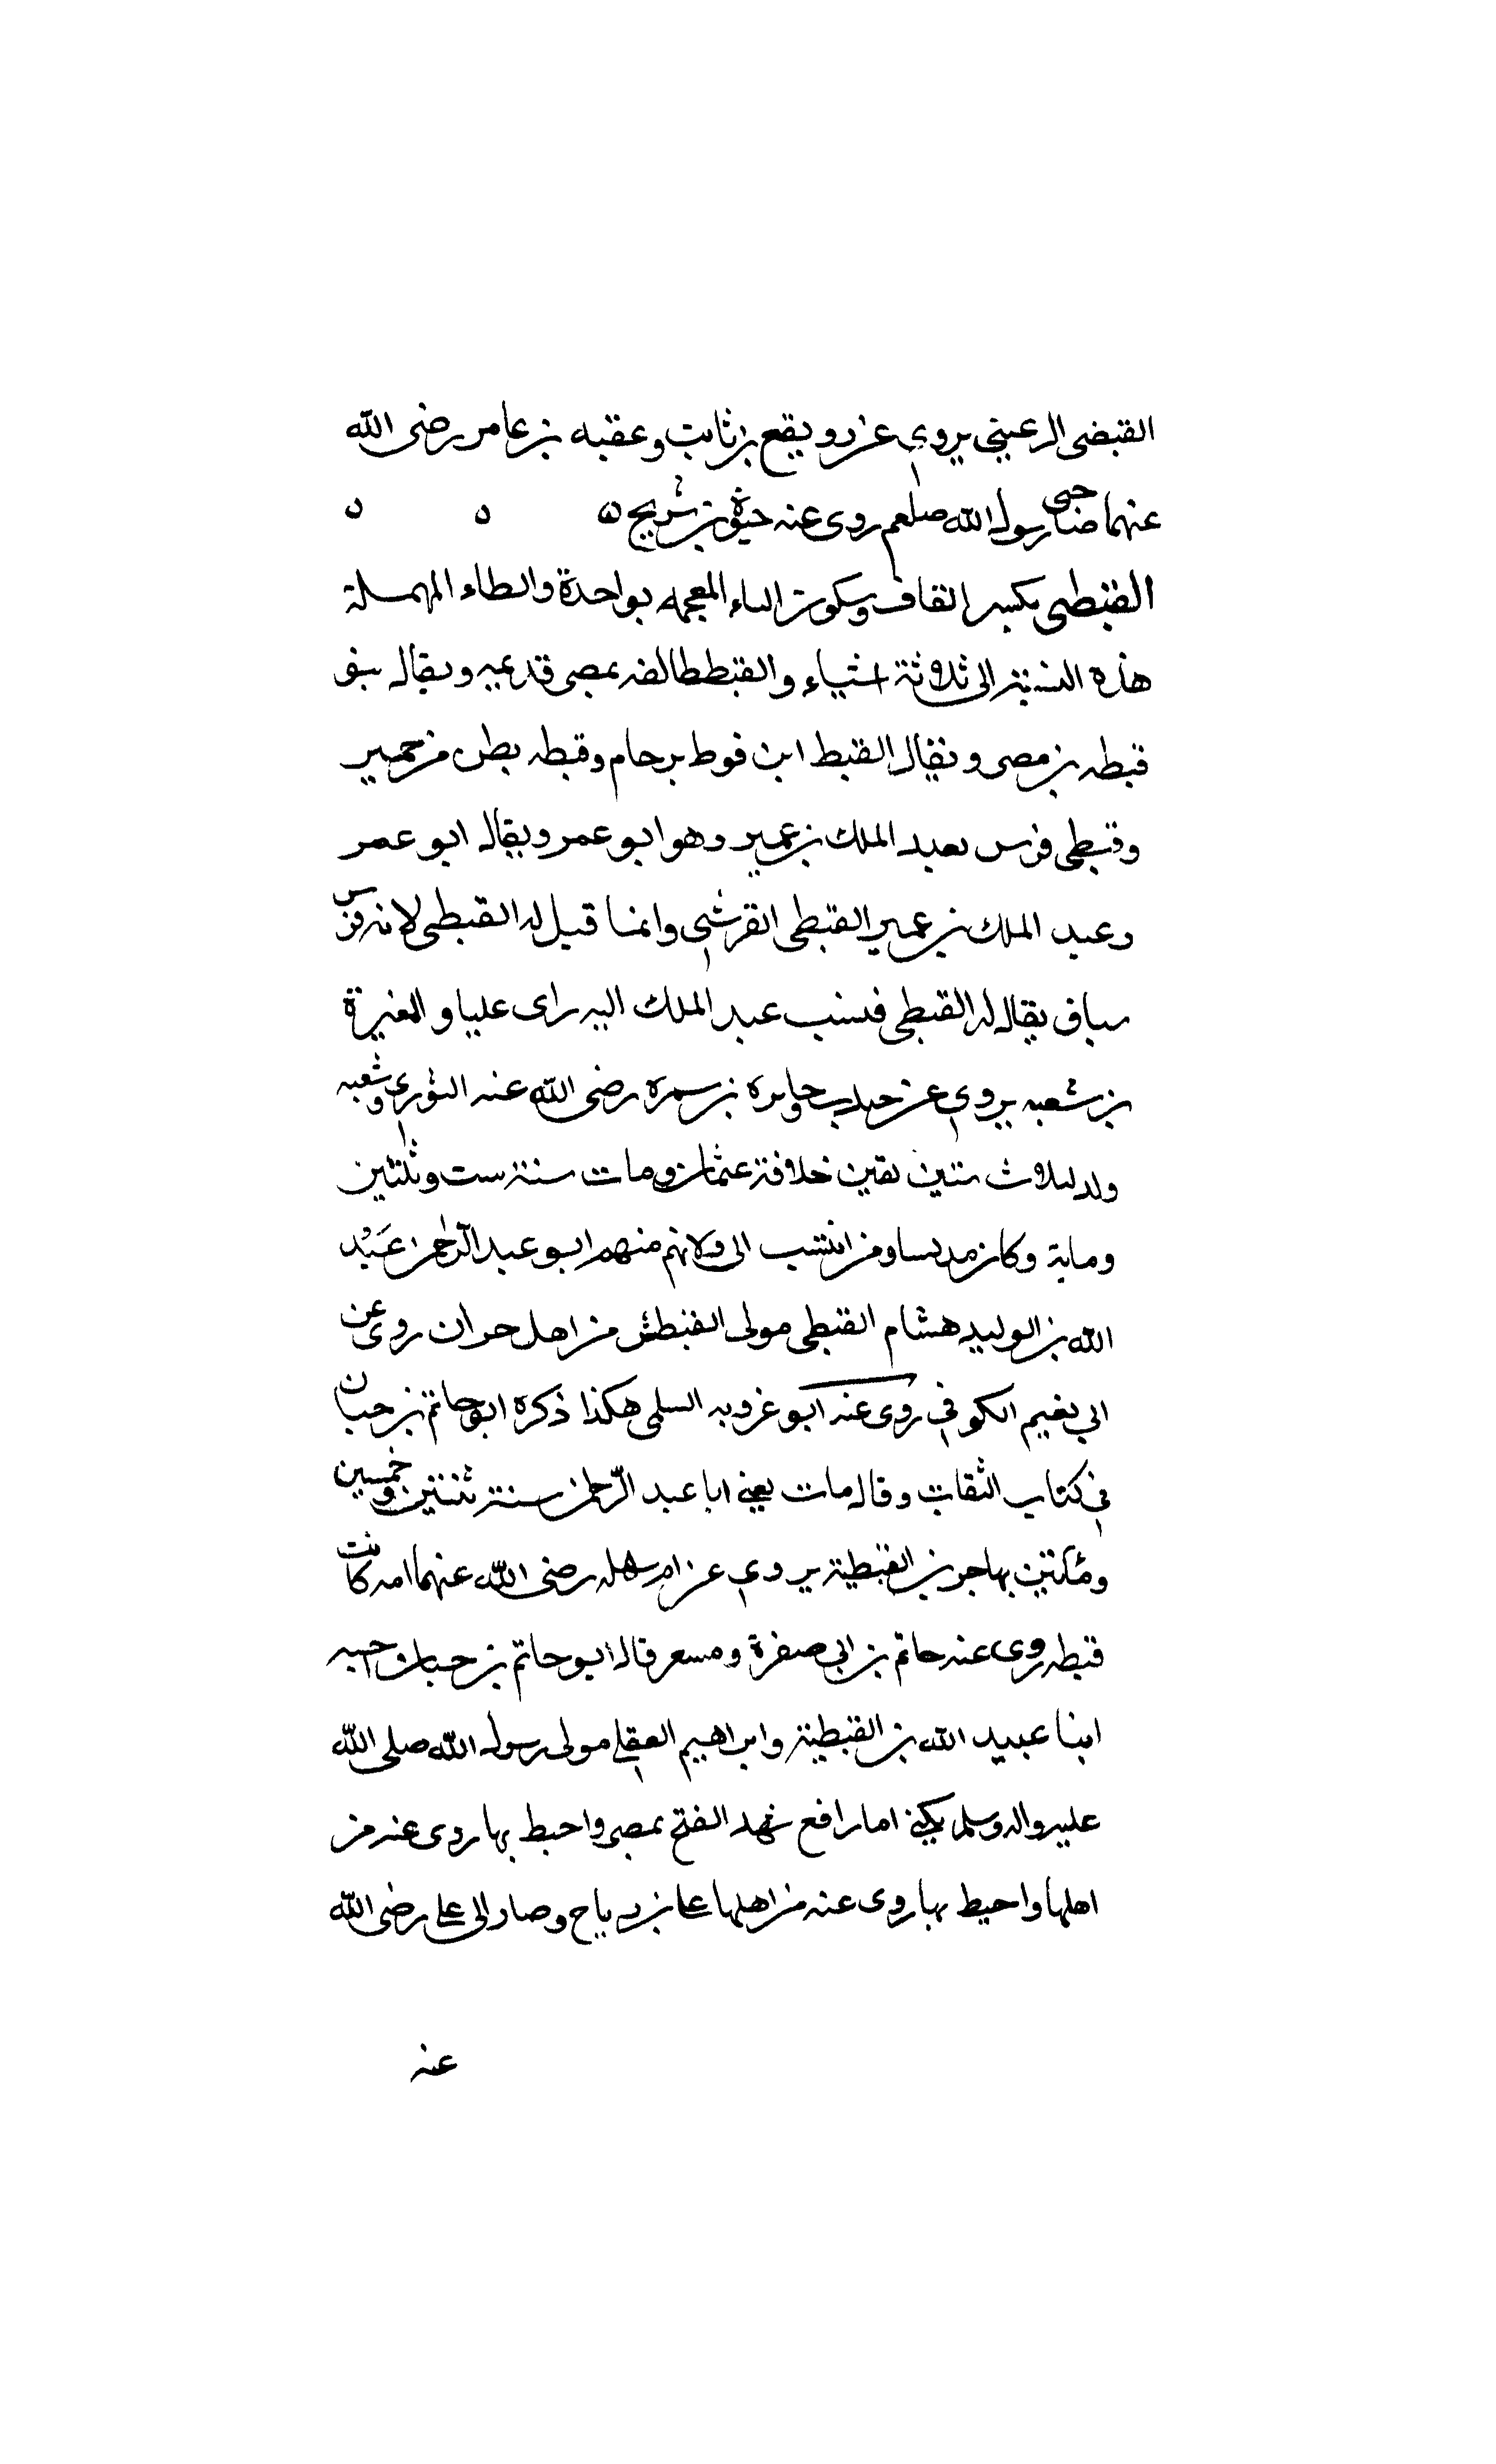 القبضى الرعينى يروى عن رويقع بن ثابت وعقبه بن عامر رضى الله
عنهما صاحبى رسول الله صلعم روى عنه حيوة بن شريح ه ه ه
القبطى بكسر القاف وسكون الباء المعجمه بواحدة والطاء المهملة
هذه النسبة الى ثلاثة اشياء والقبط طائفه بمصر قديمه ويقال بنو
قبطه بن مصر ويقال القبط ابن قوط بن حام وقبطه بطن من حمير
وقبطى فرس لعبد الملك بن عمير وهو ابو عمر ويقال ابو عمر
وعبد الملك بن عمير القبطى القرشى وانما قيل له القبطى لانه فرس
سباق يقال له القبطى فنسب عبد الملك اليه راى عليا والمغيرة
بن شعبه يروى عن جندب وجابره بن سمرة رضى الله عنه الثورى وشعبه
ولد لثلاث سنين بقين خلافة عثمان ومات سنة ست وثلثين
وماية وكان مدلسا ومن انتسب الى ولائهم منهم ابو عبد الرحمن عبيد
الله بن الوليد هشام القبطى مولى القبطى من اهل حران روى عن
ابي نعيم الكوفي روى عنه ابو عروبه السلمى هكذا ذكره ابو حاتم بن حبان
في كتاب الثقات وقال مات يعني ابا عبد الرحمن سنة ثنتين وخمسين
ومائتين بهاجر بن القبطية يروي عن ام سلمه رضى الله عنهما امه كانت
قبطه روى عنه حاتم بن ابي صفرة ومسعر قال ابو حاتم بن حبان احسبه
ابنا عبيد الله بن القبطية وابراهيم القبطى مولى رسول الله صلى الله
عليه واله وسلم يكنى ابا رافع شهد الفتح بمصر واحبط بها روى عنه من
اهلها واحيط بها روى عنه من اهلها على بن رباح وصار الى على رضى الله
عنه